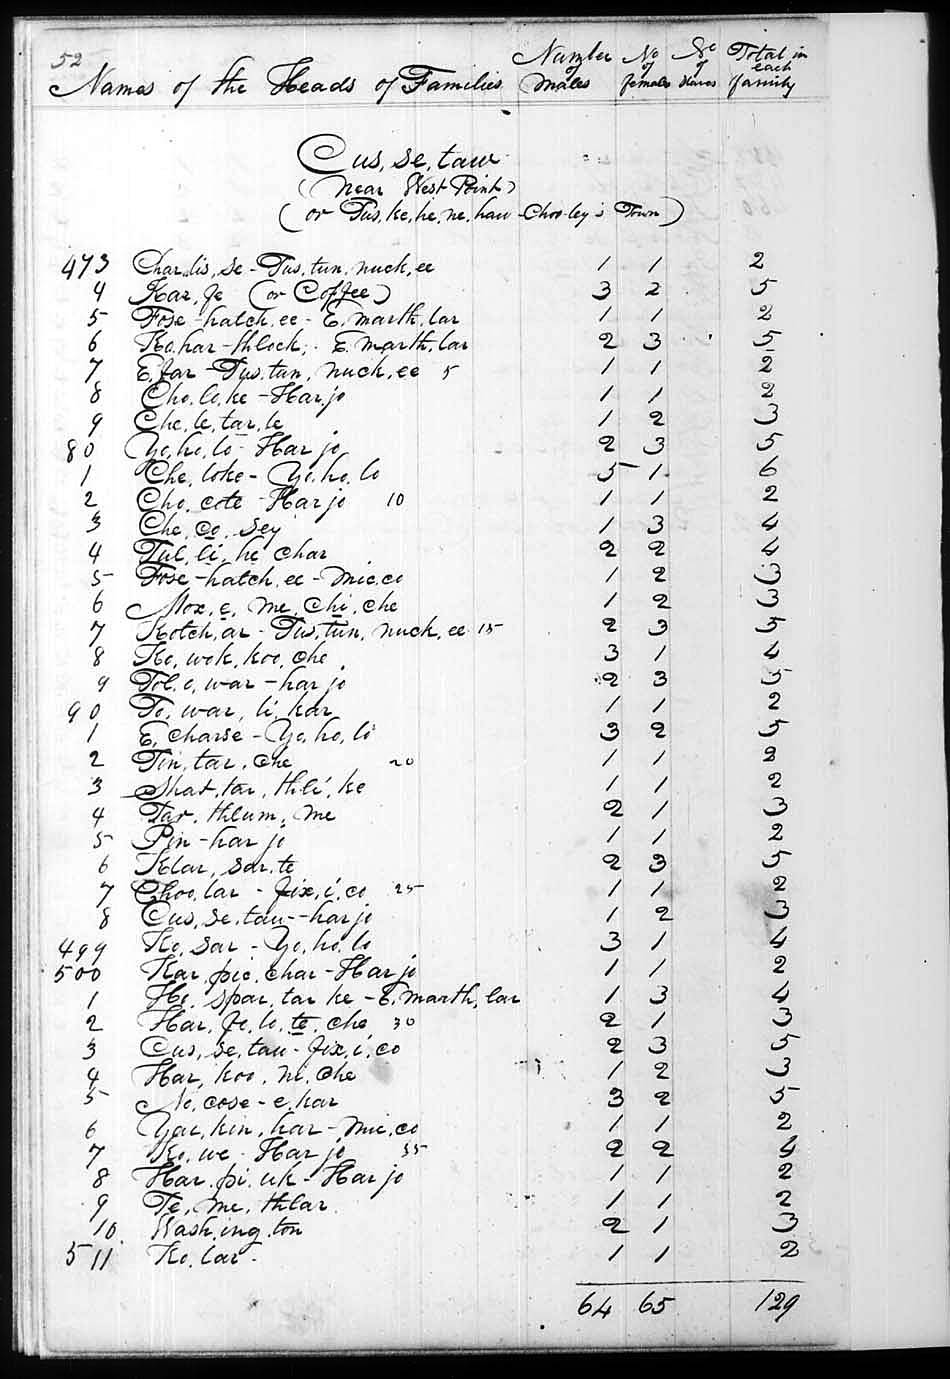 52
Names of the Heads of Families Number of Males No of females No of slaves Total in each family
Cus, se, taw
(near West Point)
(or Tus, ke, he, ne, haw - Choo-ley's Town)
473 Char, lis, se - Tus, tun, nuck, ee 1 1 2
4 Kar, fe (or Coffee) 3 2 5
5 Fose-hatch, ee - E, marth, lar 1 1 2
6 Ko, har-thlock, - E marth, lar 2 3 5
7 E, far - Tus, tun, nuck, ee 5 1 1 2
8 Cho, lo, ke - Harjo 1 1 2
9 Che, le, tar, le 1 2 3
80 Yo, ho, lo - Harjo 2 3 5
1 Che, loke - Yo, ho, lo 5 1 6
2 Cho, cote - Harjo 10 1 1 2
3 Che, co, sey 1 3 4
4 Tul, li, he char 2 2 4
5 Fose-hatch, ee - mic, co 1 2 3
6 Mox, e, me, chi, che 1 2 3
7 Kotch, ar - Tus, tun, nuck, ee 15 2 3 5
8 Ko, wok, koo, che 3 1 4
9 Tol, o, war - harjo 2 3 5
90 To, war, li, kar 1 1 2
1 E, charse - Yo, ho, lo 3 2 5
2 Tin, tar, che 20 1 1 2
3 Shat, tar, thli, ke 1 1 2
4 Tar, thlum, me 2 1 3
5 Pin-harjo 1 1 2
6 Klar, sar, te 2 3 5
7 Choo, lar - fix, i, co 25 1 1 2
8 Cus, se, tau - harjo 1 2 3
499 Ko, sar - Yo, ho, lo 3 1 4
500 Kar, pic, char - Harjo 1 1 2
1 Ho, spar, tar ke - E, marth, lar 1 3 4
2 Har, fo, lo, te, che 30 2 1 3
3 Cus, se, tau - fix, i, co 2 3 5
4 Har, koo, ne, che 1 2 3
5 No, cose - e, kar 3 2 5
6 Yar, kin, har - mic, co 1 1 2
7 Ko, we - Harjo 35 2 2 4
8 Har, pi, uk - Harjo 1 1 2
9 Te, me, thlar 1 1 2
10 Wash, ing, ton 2 1 3
511 Ko, lar 1 1 2
64 65 129